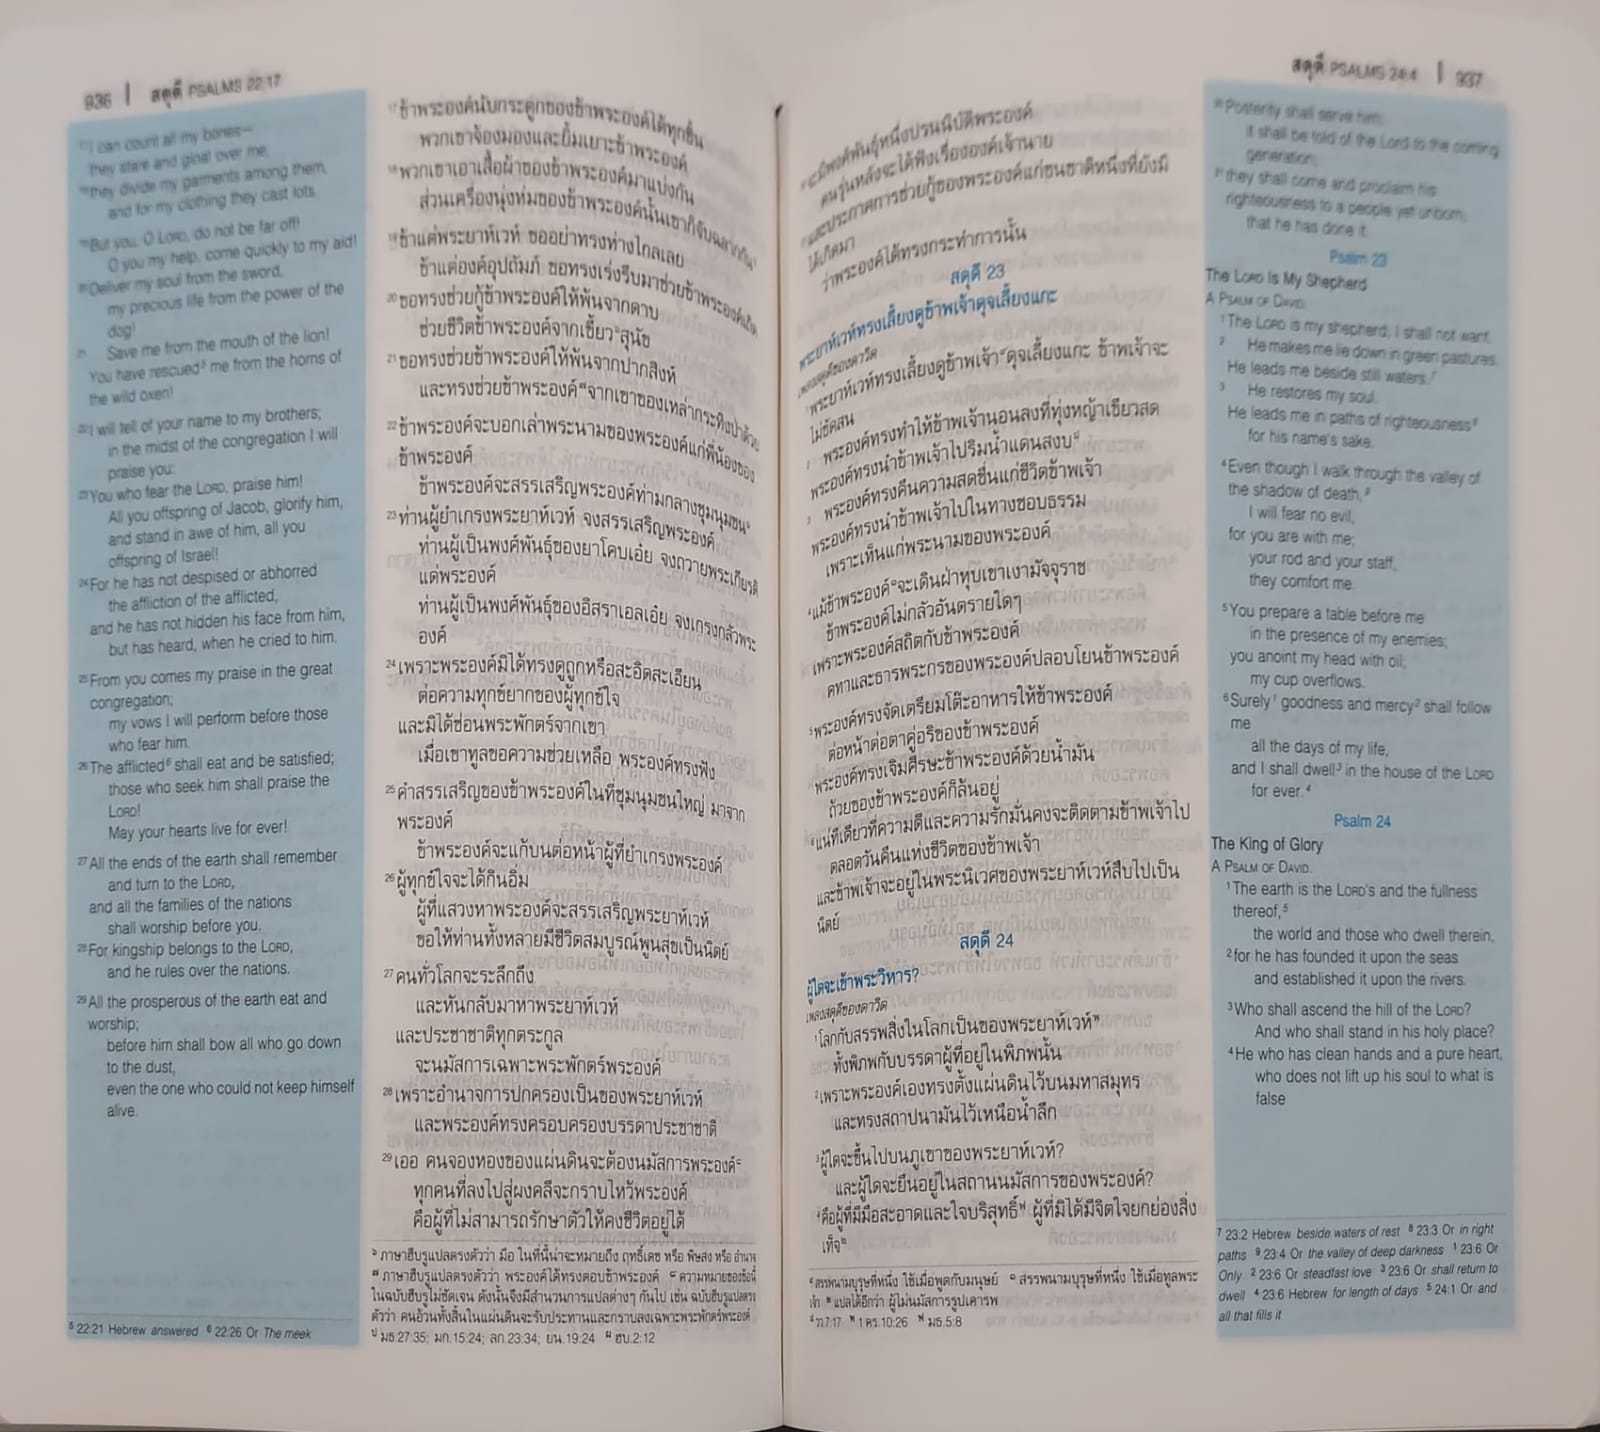 936 | สดุดี PSALMS 22:17
17 I can count all my bones—
they stare and gloat over me;
18 they divide my garments among them,
and for my clothing they cast lots.
19 But you, O LORD, do not be far off!
O you my help, come quickly to my aid!
20 Deliver my soul from the sword,
my precious life from the power of the
dog!
21 Save me from the mouth of the lion!
You have rescued5 me from the horns of
the wild oxen!
22 I will tell of your name to my brothers;
in the midst of the congregation I will
praise you:
23 You who fear the LORD, praise him!
All you offspring of Jacob, glorify him,
and stand in awe of him, all you
offspring of Israel!
24 For he has not despised or abhorred
the affliction of the afflicted,
and he has not hidden his face from him,
but has heard, when he cried to him.
25 From you comes my praise in the great
congregation;
my vows I will perform before those
who fear him.
26 The afflicted6 shall eat and be satisfied;
those who seek him shall praise the
LORD!
May your hearts live for ever!
27 All the ends of the earth shall remember
and turn to the LORD,
and all the families of the nations
shall worship before you.
28 For kingship belongs to the LORD,
and he rules over the nations.
29 All the prosperous of the earth eat and
worship;
before him shall bow all who go down
to the dust,
even the one who could not keep himself
alive.
5 22:21 Hebrew answered 6 22:26 Or The meek
17 ข้าพระองค์นับกระดูกของข้าพระองค์ได้ทุกชิ้น
พวกเขาจ้องมองและยิ้มเยาะข้าพระองค์
18 พวกเขาเอาเสื้อผ้าของข้าพระองค์มาแบ่งกัน
ส่วนเครื่องนุ่งห่มของข้าพระองค์นั้นเขาก็จับฉลากกันป
19 ข้าแต่พระยาห์เวห์ ขออย่าทรงห่างไกลเลย
ข้าแต่องค์อุปถัมภ์ ขอทรงเร่งรีบมาช่วยข้าพระองค์เถิด
20 ขอทรงช่วยกู้ข้าพระองค์ให้พ้นจากดาบ
ช่วยชีวิตข้าพระองค์จากเขี้ยวสุนัข
21 ขอทรงช่วยข้าพระองค์ให้พ้นจากปากสิงห์
และทรงช่วยข้าพระองค์จากเขาของเหล่ากระทิงป่าด้วย
22 ข้าพระองค์จะบอกเล่าพระนามของพระองค์แก่พี่น้องของ
ข้าพระองค์
ข้าพระองค์จะสรรเสริญพระองค์ท่ามกลางชุมนุมชน
23 ท่านผู้ยำเกรงพระยาห์เวห์ จงสรรเสริญพระองค์
ท่านผู้เป็นพงศ์พันธุ์ของยาโคบเอ๋ย จงถวายพระเกียรติ
แด่พระองค์
ท่านผู้เป็นพงศ์พันธุ์ของอิสราเอลเอ๋ย จงเกรงกลัวพระ
องค์
24 เพราะพระองค์มิได้ทรงดูถูกหรือสะอิดสะเอียน
ต่อความทุกข์ยากของผู้ทุกข์ใจ
และมิได้ซ่อนพระพักตร์จากเขา
เมื่อเขาทูลขอความช่วยเหลือ พระองค์ทรงฟัง
25 คำสรรเสริญของข้าพระองค์ในที่ชุมนุมชนใหญ่ มาจาก
พระองค์
ข้าพระองค์จะแก้บนต่อหน้าผู้ที่ยำเกรงพระองค์
26 ผู้ทุกข์ใจจะได้กินอิ่ม
ผู้ที่แสวงหาพระองค์จะสรรเสริญพระยาห์เวห์
ขอให้ท่านทั้งหลายมีชีวิตสมบูรณ์พูนสุขเป็นนิตย์
27 คนทั่วโลกจะระลึกถึง
และหันกลับมาหาพระยาห์เวห์
และประชาชาติทุกตระกูล
จะนมัสการเฉพาะพระพักตร์พระองค์
28 เพราะอำนาจการปกครองเป็นของพระยาห์เวห์
และพระองค์ทรงครอบครองบรรดาประชาชาติ
29 เออ คนจองหองของแผ่นดินจะต้องนมัสการพระองค์
ทุกคนที่ลงไปสู่ผงคลีจะกราบไหว้พระองค์
คือผู้ที่ไม่สามารถรักษาตัวให้คงชีวิตอยู่ได้
ภาษาฮีบรูแปลตรงตัวว่า มือ ในที่นี้น่าจะหมายถึง ฤทธิ์เดช หรือ พิษสง หรือ อำนาจ
ภาษาฮีบรูแปลตรงตัวว่า พระองค์ได้ทรงตอบข้าพระองค์ ความหมายของข้อนี้
ในฉบับฮีบรูไม่ชัดเจน ดังนั้นจึงมีสำนวนการแปลต่างๆ กันไป เช่น ฉบับฮีบรูแปลตรง
ตัวว่า คนอ้วนทั้งสิ้นในแผ่นดินจะรับประทานและกราบลงเฉพาะพระพักตร์พระองค์
ป มธ.27:35; มก.15:24; ลก.23:34; ยน.19:24 ผ ฮบ.2:12
สดุดี PSALMS 24:4 | 937
จะมีพงศ์พันธุ์หนึ่งปรนนิบัติพระองค์
คนรุ่นหลังจะได้ฟังเรื่ององค์เจ้านาย
และประกาศการช่วยกู้ของพระองค์แก่ชนชาติหนึ่งที่ยังมิ
ได้เกิดมา
ว่าพระองค์ได้ทรงกระทำการนั้น
สดุดี 23
พระยาห์เวห์ทรงเลี้ยงดูข้าพเจ้าดุจเลี้ยงแกะ
เพลงสดุดีของดาวิด
1 พระยาห์เวห์ทรงเลี้ยงดูข้าพเจ้าดุจเลี้ยงแกะ ข้าพเจ้าจะ
ไม่ขัดสน
2 พระองค์ทรงทำให้ข้าพเจ้านอนลงที่ทุ่งหญ้าเขียวสด
พระองค์ทรงนำข้าพเจ้าไปริมน้ำแดนสงบ
3 พระองค์ทรงคืนความสดชื่นแก่ชีวิตข้าพเจ้า
พระองค์ทรงนำข้าพเจ้าไปในทางชอบธรรม
เพราะเห็นแก่พระนามของพระองค์
4 แม้ข้าพระองค์จะเดินฝ่าหุบเขาเงามัจจุราช
ข้าพระองค์ไม่กลัวอันตรายใดๆ
เพราะพระองค์สถิตกับข้าพระองค์
คทาและธารพระกรของพระองค์ปลอบโยนข้าพระองค์
5 พระองค์ทรงจัดเตรียมโต๊ะอาหารให้ข้าพระองค์
ต่อหน้าต่อตาคู่อริของข้าพระองค์
พระองค์ทรงเจิมศีรษะข้าพระองค์ด้วยน้ำมัน
ถ้วยของข้าพระองค์ก็ล้นอยู่
6 แน่ทีเดียวที่ความดีและความรักมั่นคงจะติดตามข้าพเจ้าไป
ตลอดวันคืนแห่งชีวิตของข้าพเจ้า
และข้าพเจ้าจะอยู่ในพระนิเวศของพระยาห์เวห์สืบไปเป็น
นิตย์
สดุดี 24
ผู้ใดจะเข้าพระวิหาร?
เพลงสดุดีของดาวิด
1 โลกกับสรรพสิ่งในโลกเป็นของพระยาห์เวห์
ทั้งพิภพกับบรรดาผู้ที่อยู่ในพิภพนั้น
2 เพราะพระองค์เองทรงตั้งแผ่นดินไว้บนมหาสมุทร
และทรงสถาปนามันไว้เหนือน้ำลึก
3 ผู้ใดจะขึ้นไปบนภูเขาของพระยาห์เวห์?
และผู้ใดจะยืนอยู่ในสถานนมัสการของพระองค์?
4 คือผู้ที่มีมือสะอาดและใจบริสุทธิ์ ผู้ที่มิได้มีจิตใจยกย่องสิ่ง
เท็จ
สรรพนามบุรุษที่หนึ่ง ใช้เมื่อพูดกับมนุษย์ สรรพนามบุรุษที่หนึ่ง ใช้เมื่อทูลพระ
เจ้า แปลได้อีกว่า ผู้ไม่นมัสการรูปเคารพ
วว.7:17 1 คร.10:26 มธ.5:8
30 Posterity shall serve him;
it shall be told of the Lord to the coming
generation;
31 they shall come and proclaim his
righteousness to a people yet unborn,
that he has done it.
Psalm 23
The LORD Is My Shepherd
A PSALM OF DAVID.
1 The LORD is my shepherd; I shall not want.
2 He makes me lie down in green pastures.
He leads me beside still waters.7
3 He restores my soul.
He leads me in paths of righteousness8
for his name's sake.
4 Even though I walk through the valley of
the shadow of death,9
I will fear no evil,
for you are with me;
your rod and your staff,
they comfort me.
5 You prepare a table before me
in the presence of my enemies;
you anoint my head with oil;
my cup overflows.
6 Surely1 goodness and mercy2 shall follow
me
all the days of my life,
and I shall dwell3 in the house of the LORD
for ever.4
Psalm 24
The King of Glory
A PSALM OF DAVID.
1 The earth is the LORD's and the fullness
thereof,5
the world and those who dwell therein,
2 for he has founded it upon the seas
and established it upon the rivers.
3 Who shall ascend the hill of the LORD?
And who shall stand in his holy place?
4 He who has clean hands and a pure heart,
who does not lift up his soul to what is
false
7 23:2 Hebrew beside waters of rest 8 23:3 Or in right
paths 9 23:4 Or the valley of deep darkness 1 23:6 Or
Only 2 23:6 Or steadfast love 3 23:6 Or shall return to
dwell 4 23:6 Hebrew for length of days 5 24:1 Or and
all that fills it